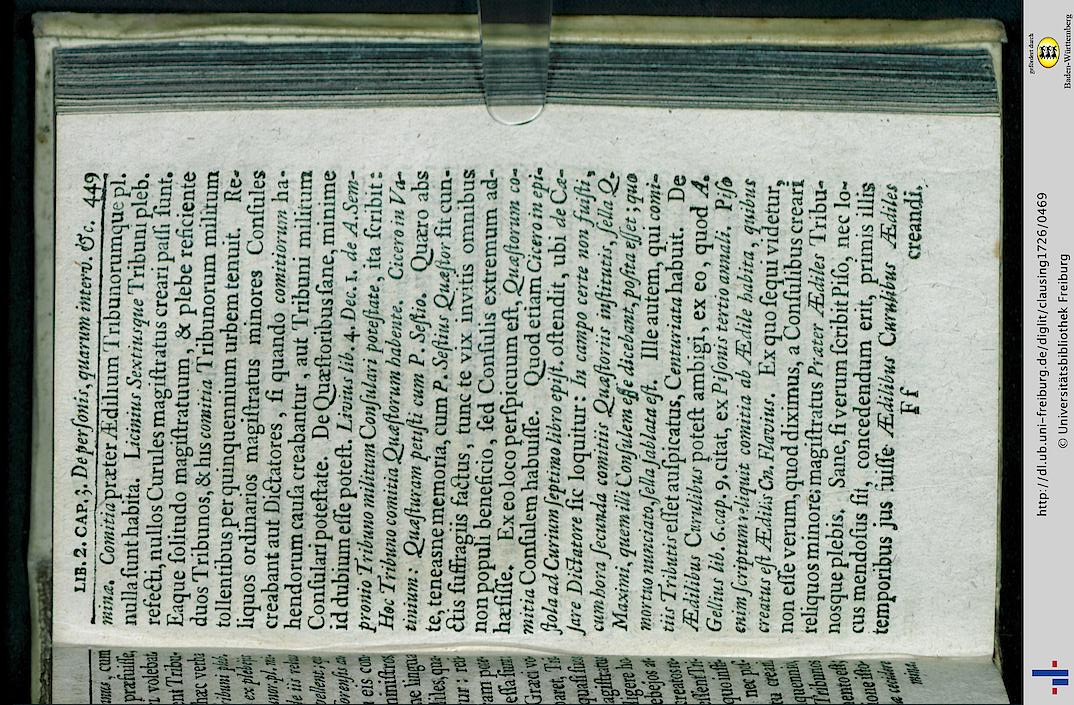 LIB. 2. CAP. 3. De personis, quarum interv. &c. 449
mina. Comitia præter Ædilium Tribunorumque pl.
nulla sunt habita. Licinius Sextiusque Tribuni pleb.
refecti, nullos Curules magistratus creari passi sunt.
Eaque solitudo magistratuum, & plebe reficiente
duos Tribunos, & his comitia Tribunorum militum
tollentibus per quinquennium urbem tenuit. Re-
liquos ordinarios magistratus minores Consules
creabant aut Dictatores, si quando comitiorum ha-
bendorum causa creabantur, aut Tribuni militum
Consulari potestate. De Quæstoribus sane, minime
id dubium esse potest. Livius lib. 4. Dec. 1. de A. Sem-
pronio Tribuno militum Consulari poestate, ita scribit:
Hoc Tribuno comitia Quæstorum habente. Cicero in Va-
tinium: Quæsturam petisti cum P. Sestio. Quæro abs
te, teneasne memoria, cum P. Sestius Quæstor sit cun-
ctis suffragiis factus, tunc te vix invitis omnibus
non populi beneficio, sed Consulis extremum ad-
hæsisse. Ex eo loco perspicuum est, Quæstorum co-
mitia Consulem habuisse. Quod etiam Cicero in epi-
stola ad Curium septimo libro epist. ostendit, ubi de Cæ-
sare Dictatore sic loquitur: In campo certe non fuisti,
cum hora secunda comitiis Quæstoriis institutis, sella Q.
Maximi, quem illi Consulem esse dicebant, posita esset; quo
mortuo nunciato, sella sublata est. Ille autem, qui comi-
tiis Tributis esset auspicatus, Centuriata habuit. De
Ædilibus Curulibus potest ambigi, ex eo, quod A.
Gellius lib. 6. cap. 9. citat, ex Pisonis tertio annali. Piso
enim scriptum reliquit comitia ab Ædile habita, quibus
creatus est Ædilis Cn. Flavius. Ex quo sequi videtur,
non esse verum, quod diximus, a Consulibus creari
reliquos minores magistratus Præter Ædiles Tribu-
nosque plebis. Sane, si verum scribit Piso, nec lo-
cus mendosus sit, concedendum erit, primis illis
temporibus jus fuisse Ædilibus Curulibus Ædiles
Ff creandi,
http://dl.ub.uni-freiburg.de/diglit/clausing1726/0469
© Universitätsbibliothek Freiburg
gefördert durch
Baden-Württemberg